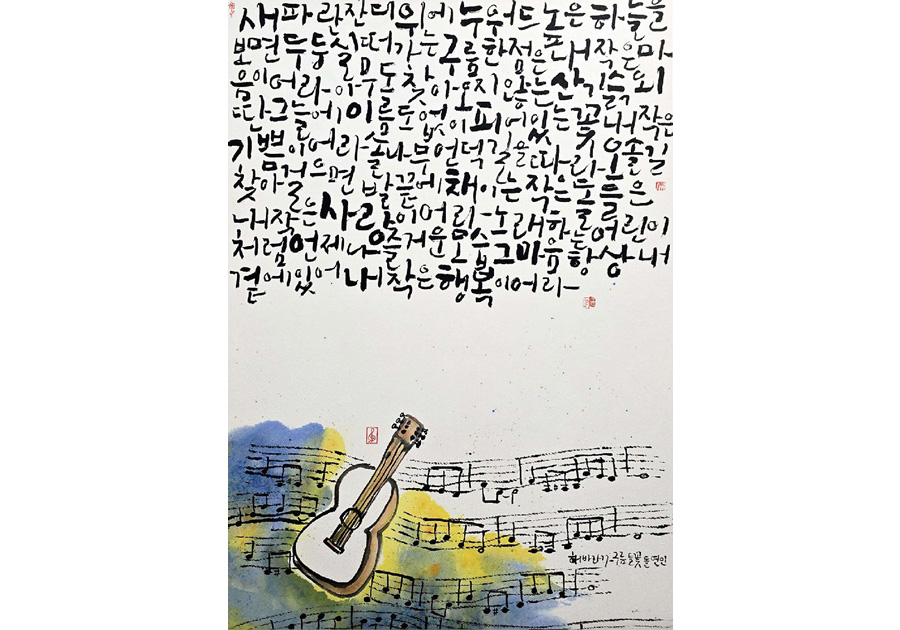 새파란잔디위에누워드높은하늘을
보면두둥실떠가는구름한점은내작은마
음이어라아무도찾아오지않는산기슭외
딴그늘에이름도없이피어있는꽃내작은
기쁨이어라솔나무언덕길을따라오솔길
찾아걸으면발끝에채이는작은돌들은
내작은사랑이어라노래하는어린이
처럼언제나즐거운모습그마음항상내
곁에있어내작은행복이어라
해바라기-구름들꽃돌연인